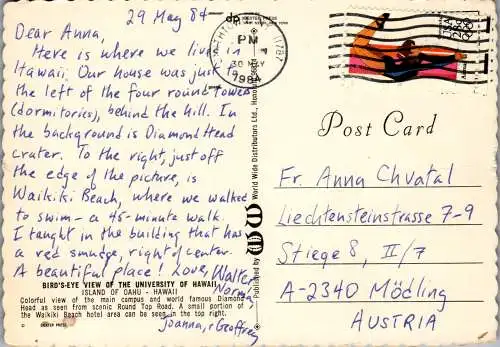 29 May 84
Dear Anna,
Here is where we lived in
Hawaii. Our house was just to
the left of the four round towers
(dormitories), behind the hill. In
the background is Diamond Head
crater. To the right, just off
the edge of the picture, is
Waikiki Beach, where we walked
to swim – a 45-minute walk.
I taught in the building that has
a red smudge, right of center.
A beautiful place! Love, Walter
Norma
Joanna, & Geoffrey
BIRD'S-EYE VIEW OF THE UNIVERSITY OF HAWAII
ISLAND OF OAHU - HAWAII
Colorful view of the main campus and world famous Diamond
Head as seen from scenic Round Top Road. A small portion of
the Waikiki Beach hotel area can be seen in the top right.
DEXTER PRESS
Published by WW World Wide Distributors Ltd., Honolulu
PM
30 MAY
1984
USA
Post Card
Fr. Anna Chvatal
Liechtensteinstrasse 7-9
Stiege 8, II/7
A-2340 Mödling
AUSTRIA